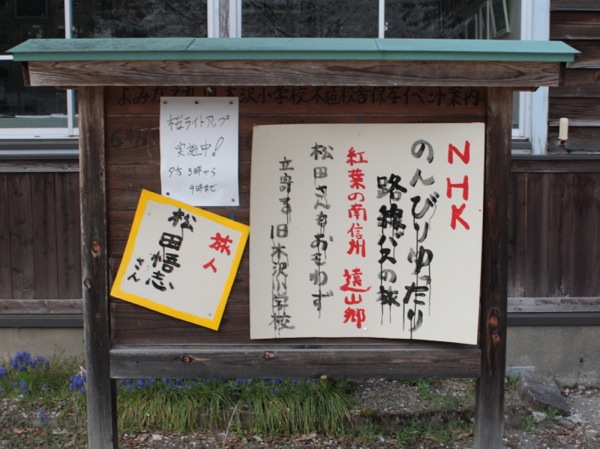 よみがえれ 木沢小学校木造校舎保存イベント案内
桜ライトアップ
実施中!
夕方 5時から
9時まで
旅人
松田悟志さん
NHK
のんびりゆったり
路線バスの旅
紅葉の南信州 遠山郷
松田さんもおもわず
立寄る旧木沢小学校